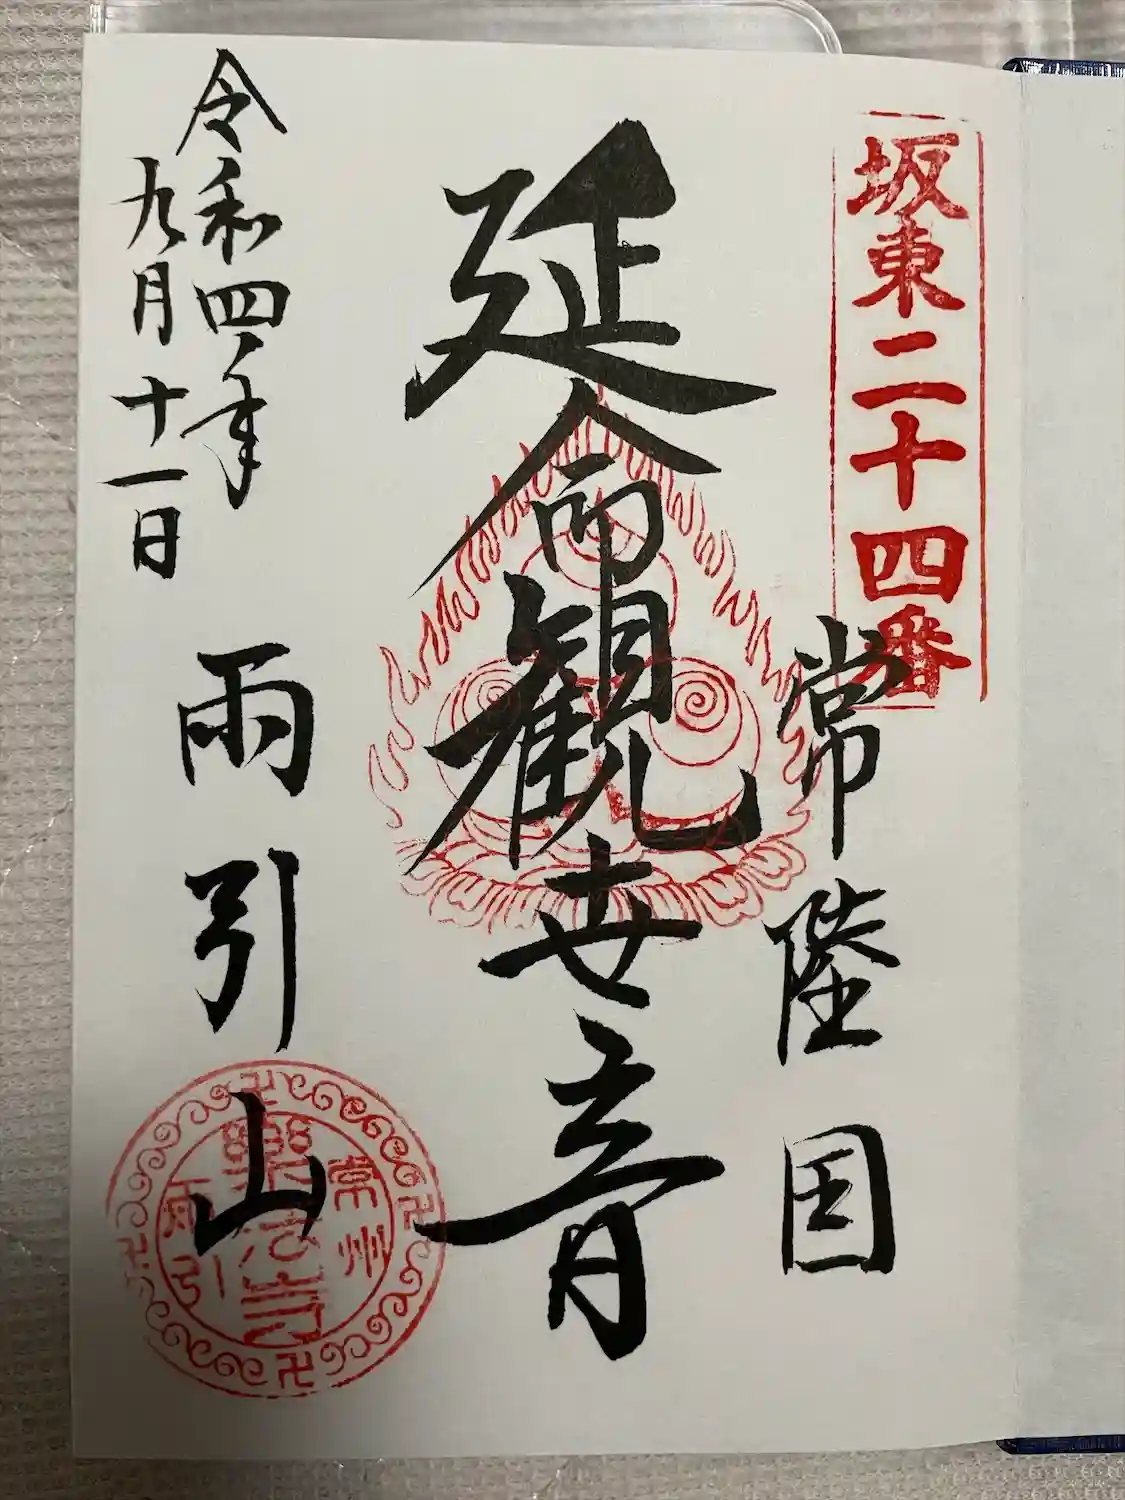 坂東二十四番
常陸国
延命観世音
令和四年
九月十一日
雨引山
常州
雨引
法寺